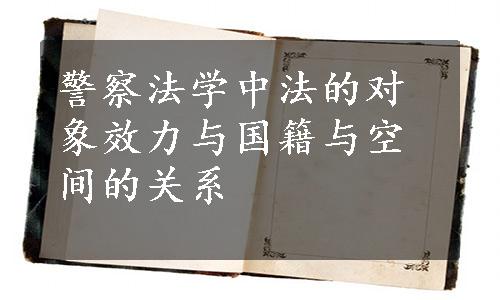 警察法学中法的对
象效力与国籍与空
间的关系